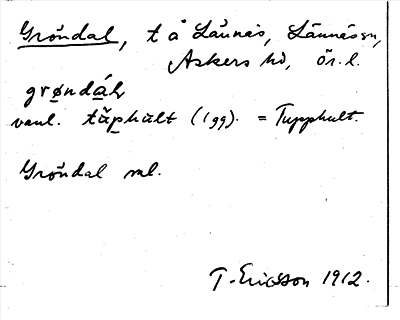 Gröndal, t å Lännäs, Lännäs sn,
Askers hd, Ör. l.
grøndáḷ
vanl. tùphult (1 gg). = Tupphult.
Gröndal ml.
T. Ericsson 1912.